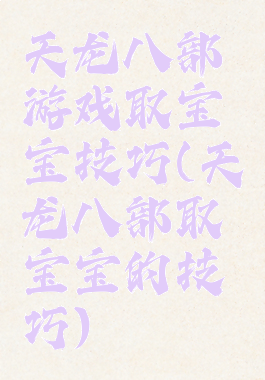 天龙八部
游戏取宝
宝技巧(天
龙八部取
宝宝的技
巧)